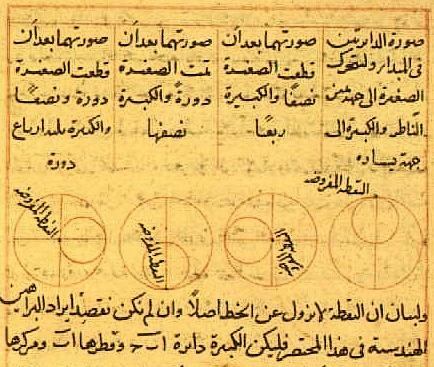 صورة الدايرتين
فى المبدا ولتتحرك
الصغيرة الى جهة يمين
الناظر والكبيرة الى
جهة يساره
صورتهما بعد ان
قطعت الصغيرة
نصفا والكبيرة
ربعا
صورتهما بعد ان
تمت الصغيرة
دورة والكبيرة
نصفها
صورتهما بعد ان
قطعت الصغيرة
دورة ونصفا
والكبيرة ثلثة ارباع
دورة
النقطة المفروضة
النقطة المفروضة
النقطة المفروضة
النقطة المفروضة
ولبيان ان النقطة لا تزول عن الخط اصلا وان لم تكن نقصد ايراد البراهين
الهندسية فى هذا المختصر فليكن الكبيرة دائرة اب وقطرها اب ومركزها